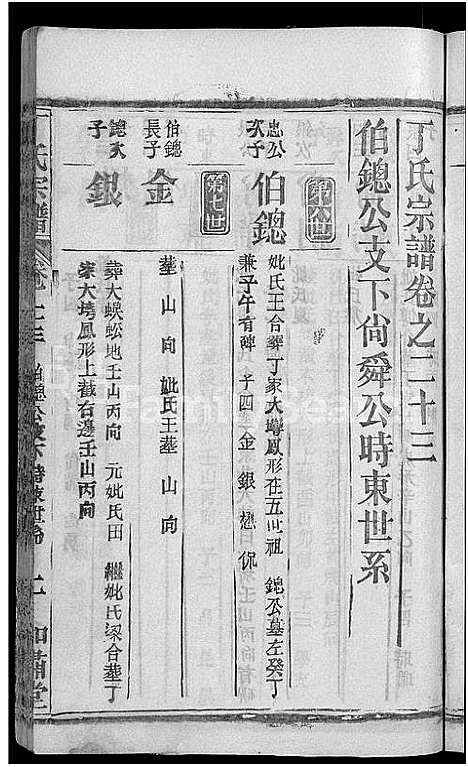 丁氏宗譜卷之二十三
伯鏓公支下尙舜公時東世系
第六世
忠公次子
伯鏓
妣氏王合葬丁家大塆鳳形在五世祖 鏓公墓左癸丁
兼子午有碑 子四 金 銀 懋 侃
第七世
伯鏓長子
金
葬 山 向 妣氏王葬 山 向
鏓次子
銀
葬大蜈蚣地壬山丙向 元妣氏田 繼妣氏梁合葬丁
家大塆鳳形上截右邊壬山丙向
丁氏宗譜